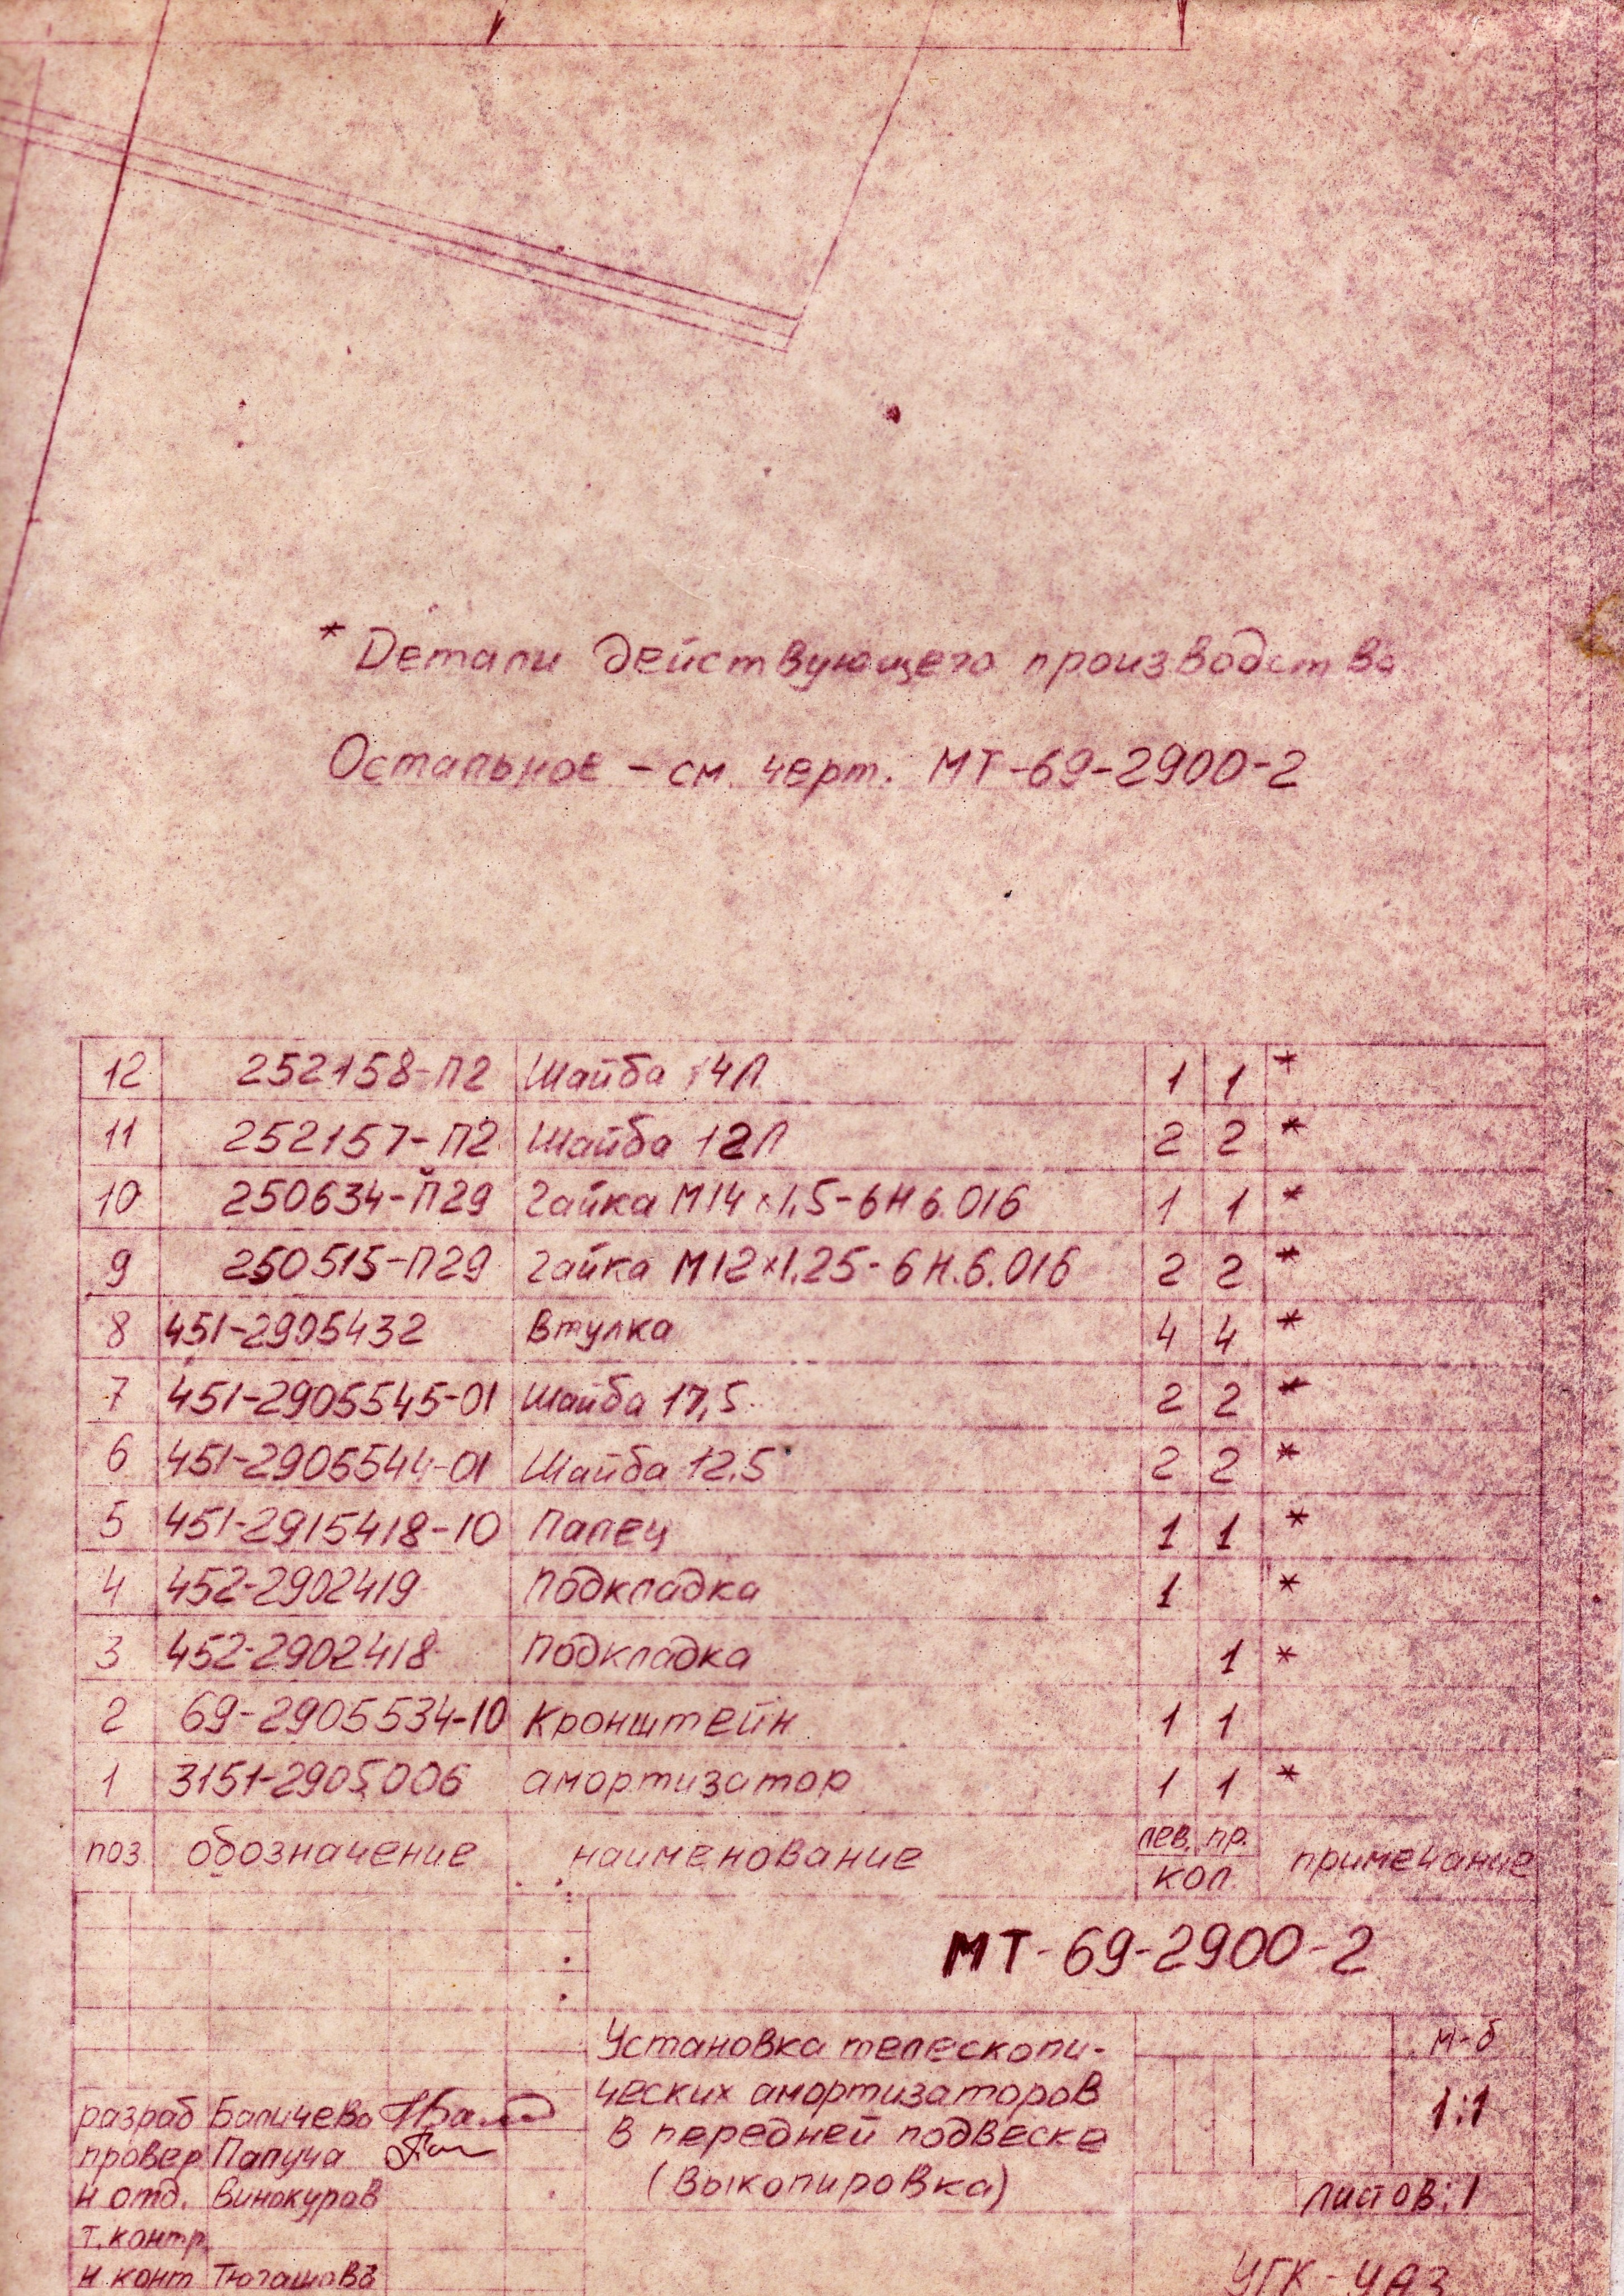 * Детали действующего производства
Остальное - см. черт. МТ-69-2900-2
12 252158-П2 Шайба 14Л 1 1 *
11 252157-П2 Шайба 12Л 2 2 *
10 250634-П29 Гайка М14×1,5-6Н6.016 1 1 *
9 250515-П29 Гайка М12×1,25-6Н.6.016 2 2 *
8 451-2905432 Втулка 4 4 *
7 451-2905545-01 Шайба 17,5 2 2 *
6 451-2905544-01 Шайба 12,5 2 2 *
5 451-2915418-10 Палец 1 1 *
4 452-2902419 Подкладка 1 *
3 452-2902418 Подкладка 1 *
2 69-2905534-10 Кронштейн 1 1
1 3151-2905006 амортизатор 1 1 *
поз. обозначение наименование лев. пр. примечание
кол.
МТ-69-2900-2
Установка телескопи-
ческих амортизаторов
в передней подвеске
(выкопировка)
м-б
1:1
листов: 1
УГК-УАЗ
разраб Баличева
провер. Папуча
Н отд. Винокуров
Т. контр.
Н контр